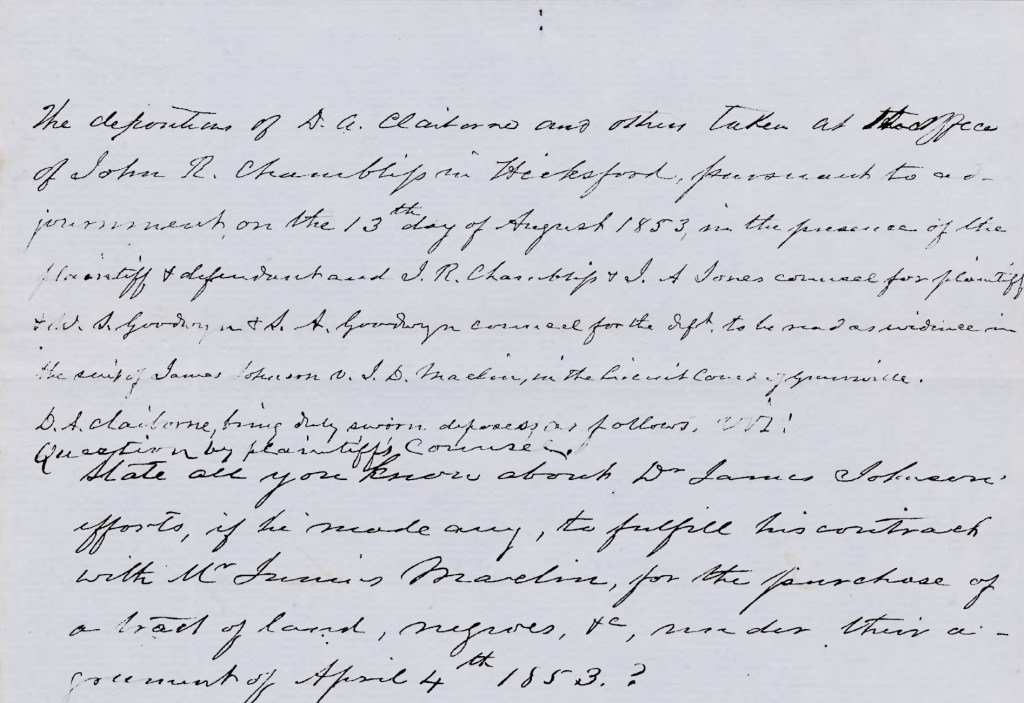 The depositions of D. A. Claiborne and others taken at the office
of John R. Chambliss in Hicksford, pursuant to ad-
journment, on the 13th day of August 1853, in the presence of the
plaintiff & defendant and J. R. Chambliss & J. A Jones counsel for plaintiff
& W. S. Goodwyn & S. A. Goodwyn counsel for the deft. to be read as evidence in
the suit of James Johnson v. J. D. Maclin, in the Circuit Court of Greensville.
D. A. Claiborne, being duly sworn deposes as follows, viz:
Question by plaintiff's Counsel.
State all you know about Dr James Johnson'
efforts, if he made any, to fulfill his contract
with Mr Junius Maclin, for the purchase of
a tract of land, negroes, &c, under their a-
greement of April 4th 1853.?